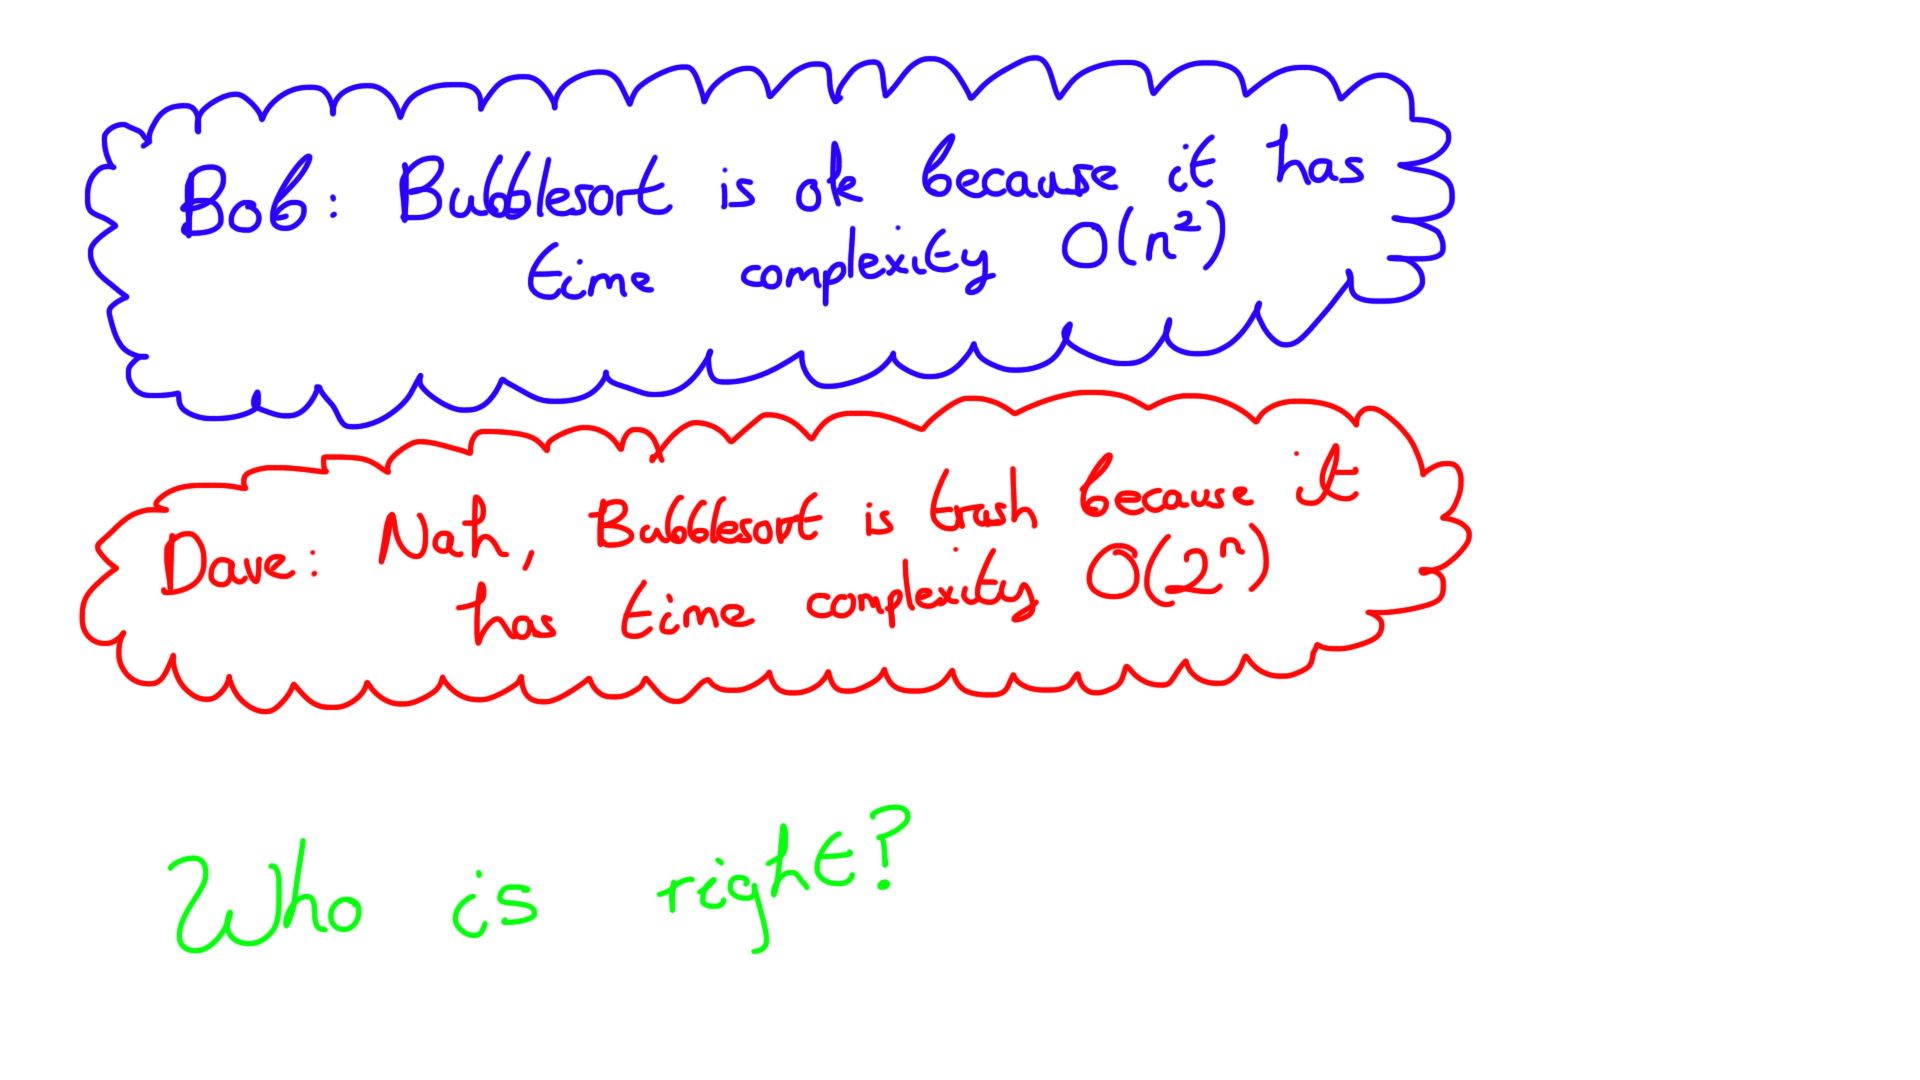 Bob: Bubblesort is ok because it has
time complexity O(n²)
Dave: Nah, Bubblesort is trash because it
has time complexity O(2ⁿ)
Who is right?